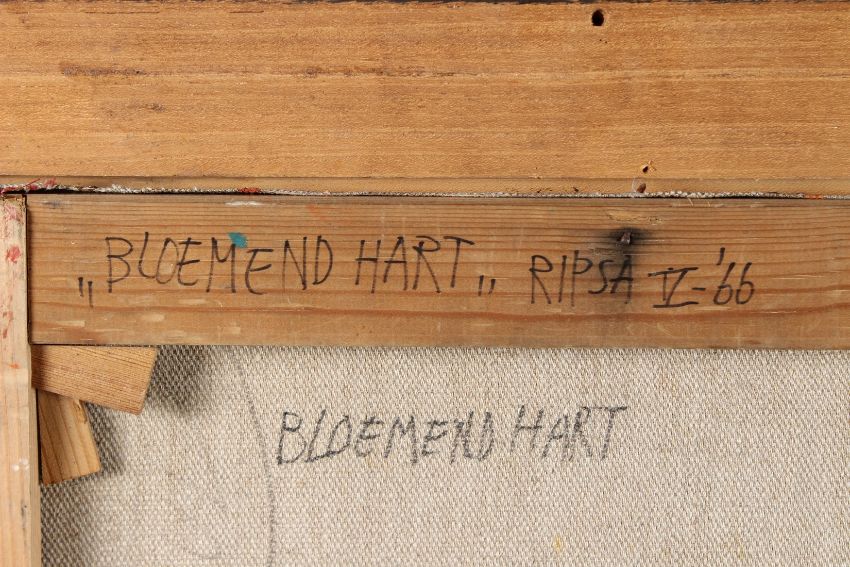 „BLOEMEND HART„ RIPSA V-'66
BLOEMEND HART